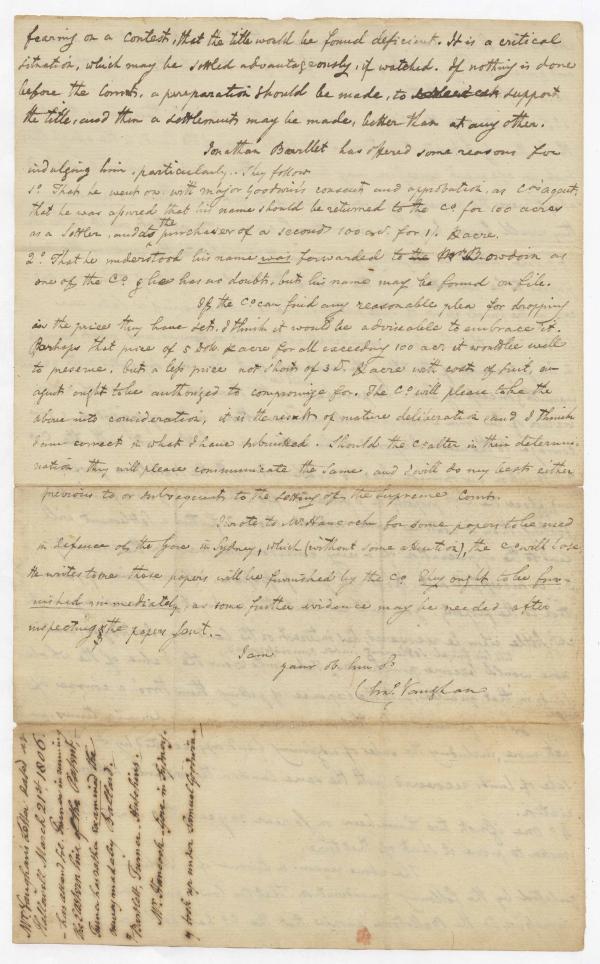 fearing on a contest, that the title would be found deficient. It is a critical
situation, which may be settled advantageously, if watched. If nothing is done
before the Courts, a preparation should be made, to support
the title, and then a settlement may be made, better than at any other.
Jonathan Bartlet has offered some reasons for
indulging him, particularly. They follow
1o. That he went on with Major Goodwin's consent and approbation, as Co's agent.
that he was assured that his name should be returned to the Co. for 100 acres
as a settler, and as the purchaser of a second 100 acr. for 1/. acre.
2o. That he understood his name was forwarded to Mr. Bowdoin as
one of the Co. & he has no doubt, but his name may be found on file.
If the Co. can find any reasonable plea for dropping
in the price they have set, I think it would be adviseable to embrace it.
Perhaps that price of 5 Dol. acre for all exceeding 100 acr. it would be well
to preserve, but a less price not short of 3 d. acre with costs of suit, an
agent ought to be authorized to compromise for. The Co. will please take the
above into consideration, it is the result of mature deliberation, and I think
I am correct in what I have submitted. Should the Co. alter in their determi-
nation they will please communicate the same, and I will do my best either
previous to or subsequent to the setting of the Supreme Court.
I wrote to Mr. Hancock for some papers to be used
in defence of the Gore in Sydney, which (without some attention), the Co. will lose,
He writes to me those papers will be furnished by the Co. They ought to be fur-
nished immediately, as some further evidence may be needed after
inspecting the papers sent.
I am
your ob. hm. st.
Cha. Vaughan
Mr. Vaughan's Letter dated at
Hallowell March 21st 1806.
the Eastern line of the Patent.
examined the
survey made by Ballard.
Bartlett, Turner, Hutchins.
Mr. Hancock Gore in Sydney.
took up under Samuel Goodwin